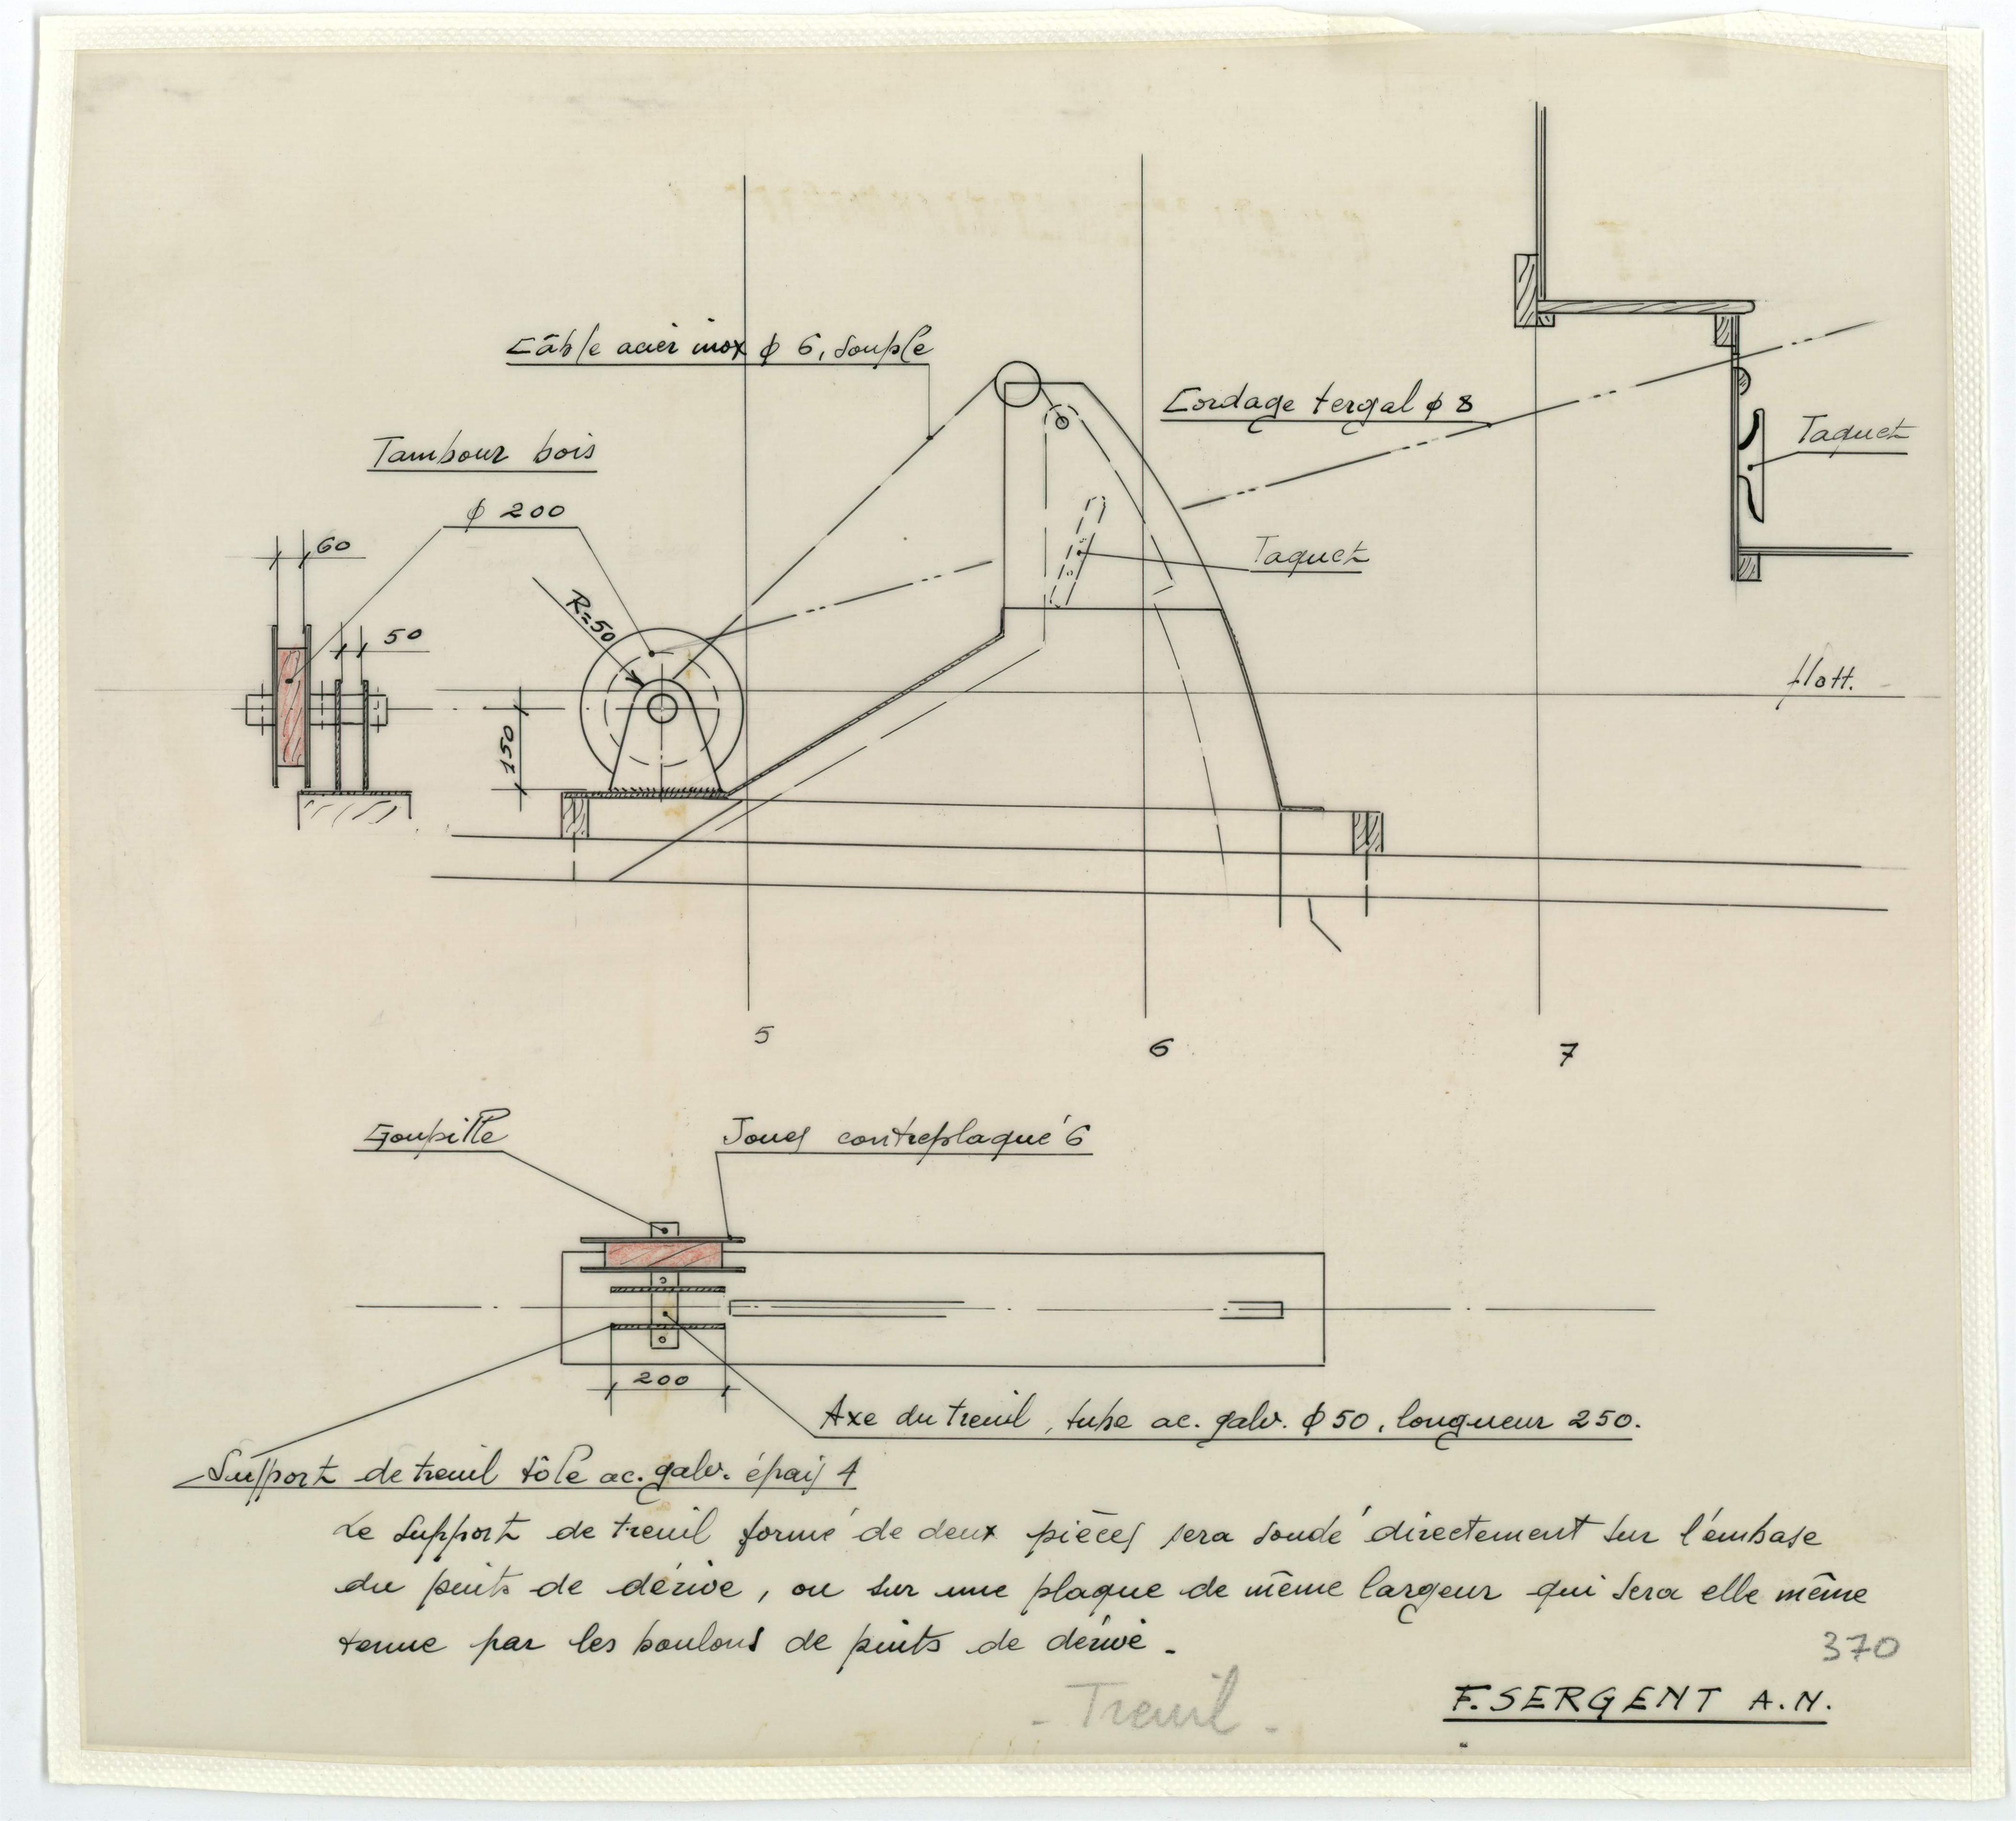 Câble acier inox ϕ 6, souple
Cordage tergal ϕ 8
Taquet
Tambour bois
ϕ 200
60
50
R=50
Taquet
150
flott.
5
6
7
Goupille
Joues contreplaqué 6
200
Axe du treuil, tube ac. galv. ϕ 50, longueur 250.
Support de treuil tôle ac. galv. épais 4
Le support de treuil formé de deux pièces sera soudé directement sur l'embase
du puits de dérive, ou sur une plaque de même largeur qui sera elle même
tenue par les boulons de puits de dérive.
370
- Treuil -
F. SERGENT A.N.